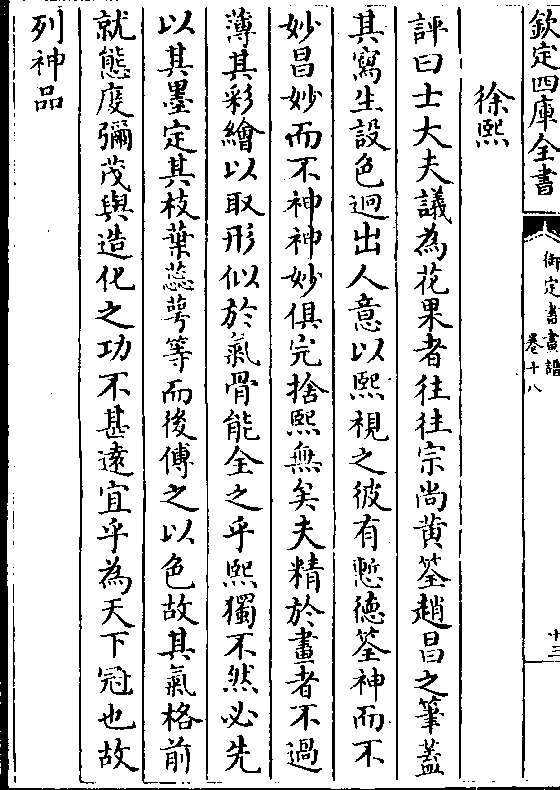 欽定四庫全書
御定書畫譜
卷十八
十三
徐熙
評曰士大夫議為花果者往往宗尚黄筌趙昌之筆蓋
其寫生設色迥出人意以熙視之彼有慙德筌神而不
妙昌妙而不神神妙俱完捨熙無矣夫精於畫者不過
薄其彩繪以取形似於氣骨能全之乎熙獨不然必先
以其墨定其枝葉蕊萼等而後傅之以色故其氣格前
就態度彌茂與造化之功不甚逺宜乎為天下冠也故
列神品